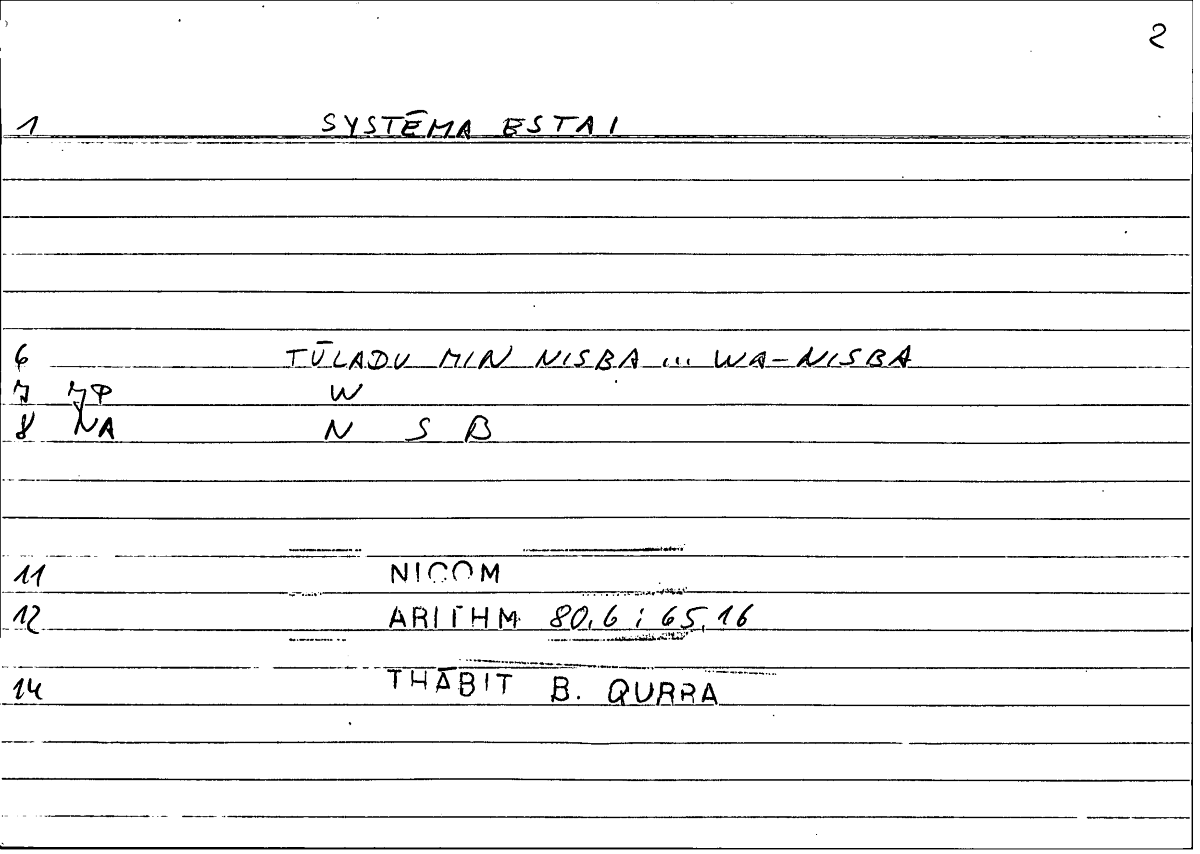 2
1 SYSTĒMA ESTAI
6 TŪLADU MIN NISBA ... WA-NISBA
7 W
8 NA N S B
11 NICOM
12 ARITHM 80,6 ; 65,16
14 THĀBIT B. QURRA